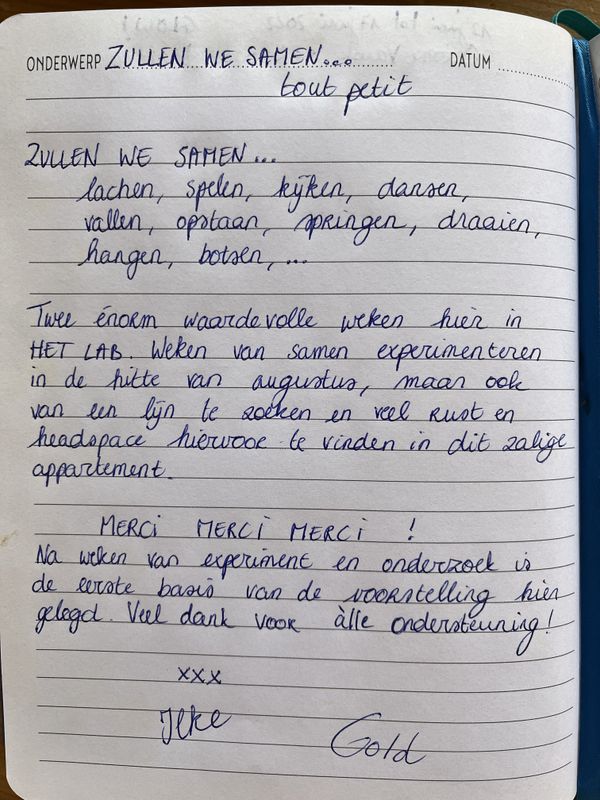 ONDERWERP ZULLEN WE SAMEN... DATUM
tout petit
ZULLEN WE SAMEN...
lachen, spelen, kijken, dansen,
vallen, opstaan, springen, draaien,
hangen, botsen, ...
Twee énorm waardevolle weken hier in
HET LAB. Weken van samen experimenteren
in de hitte van augustus, maar ook
van een lijn te zoeken en veel rust en
headspace hiervoor te vinden in dit zalige
appartement.
MERCI MERCI MERCI !
Na weken van experiment en onderzoek is
de eerste basis van de voorstelling hier
gelegd. Veel dank voor àlle ondersteuning!
xxx
Ilke Gold